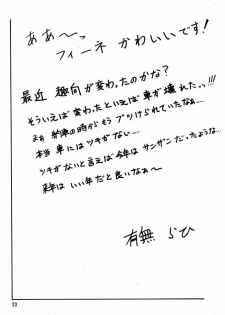 ああ〜っ
フィーネ かわいいです!
最近 趣向が変わったのかな?
そういえば変わったといえば車が壊れたっっ!!!
まぁ 納車の時からもうブツけられていたなぁ…
本当 車にはツキがない…
ツキがないと言えば今年はサンザンだったような…
来年は いい年だと良いなぁ〜
有無らひ
23